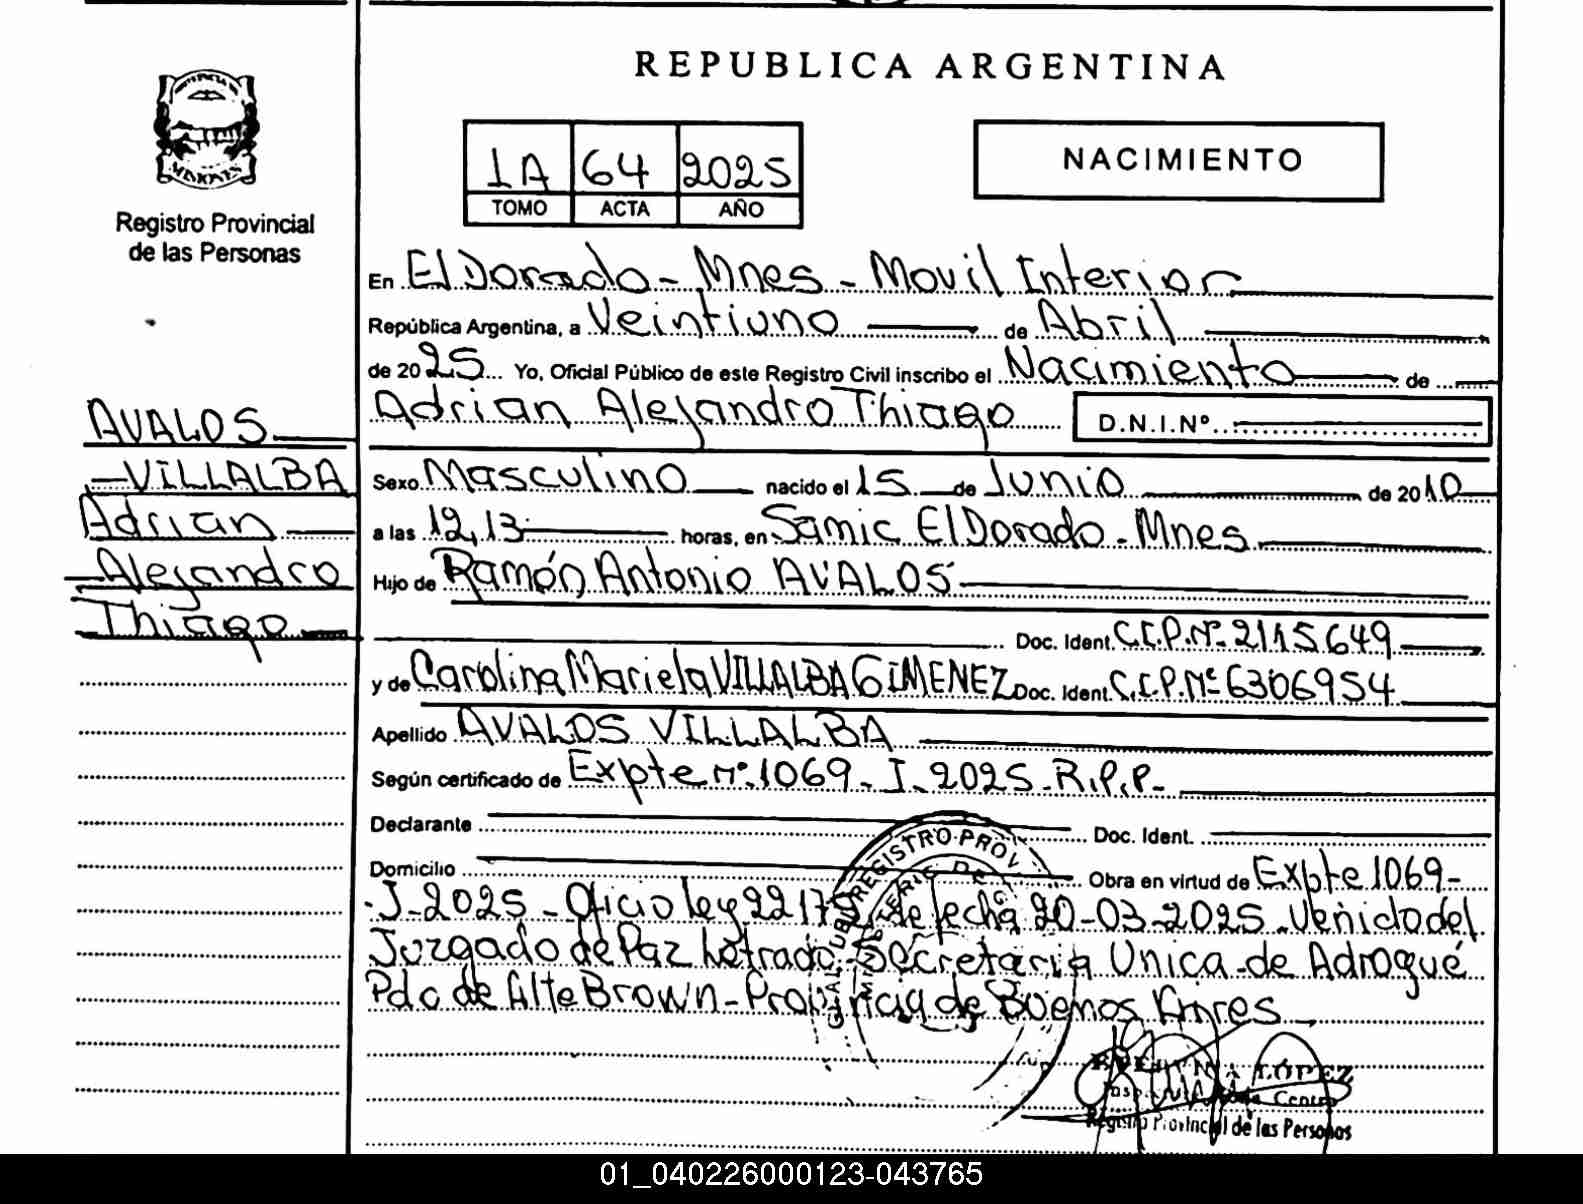 REPUBLICA ARGENTINA
1A 64 2025
TOMO ACTA AÑO
NACIMIENTO
MISIONES
Registro Provincial
de las Personas
AVALOS
VILLALBA
Adrian
Alejandro
Thiago
En El Dorado - Mnes - Movil Interior
República Argentina, a Veintiuno de Abril
de 2025 Yo, Oficial Público de este Registro Civil inscribo el Nacimiento de
Adrian Alejandro Thiago D.N.I.Nº
Sexo Masculino nacido el 15 de Junio de 2010
a las 12,13 horas, en Samic El Dorado - Mnes
Hijo de Ramón Antonio AVALOS
Doc. Ident. C.I.P.Nº 2115649
y de Carolina Mariela VILLALBA GIMENEZ Doc. Ident. C.I.P.Nº 6306954
Apellido AVALOS VILLALBA
Según certificado de Expte nº 1069 - J - 2025 - R.P.P -
Declarante Doc. Ident.
Domicilio Obra en virtud de Expte 1069-
-J-2025 - Oficio ley 22172, de fecha 20-03-2025 - Venido del
Juzgado de Paz Letrado - Secretaria Unica - de Adrogué
Pdo de Alte Brown - Provincia de Buenos Aires
REGISTRO PROV
LÓPEZ
Centro
Registro Provincial de las Personas
01_040226000123-043765